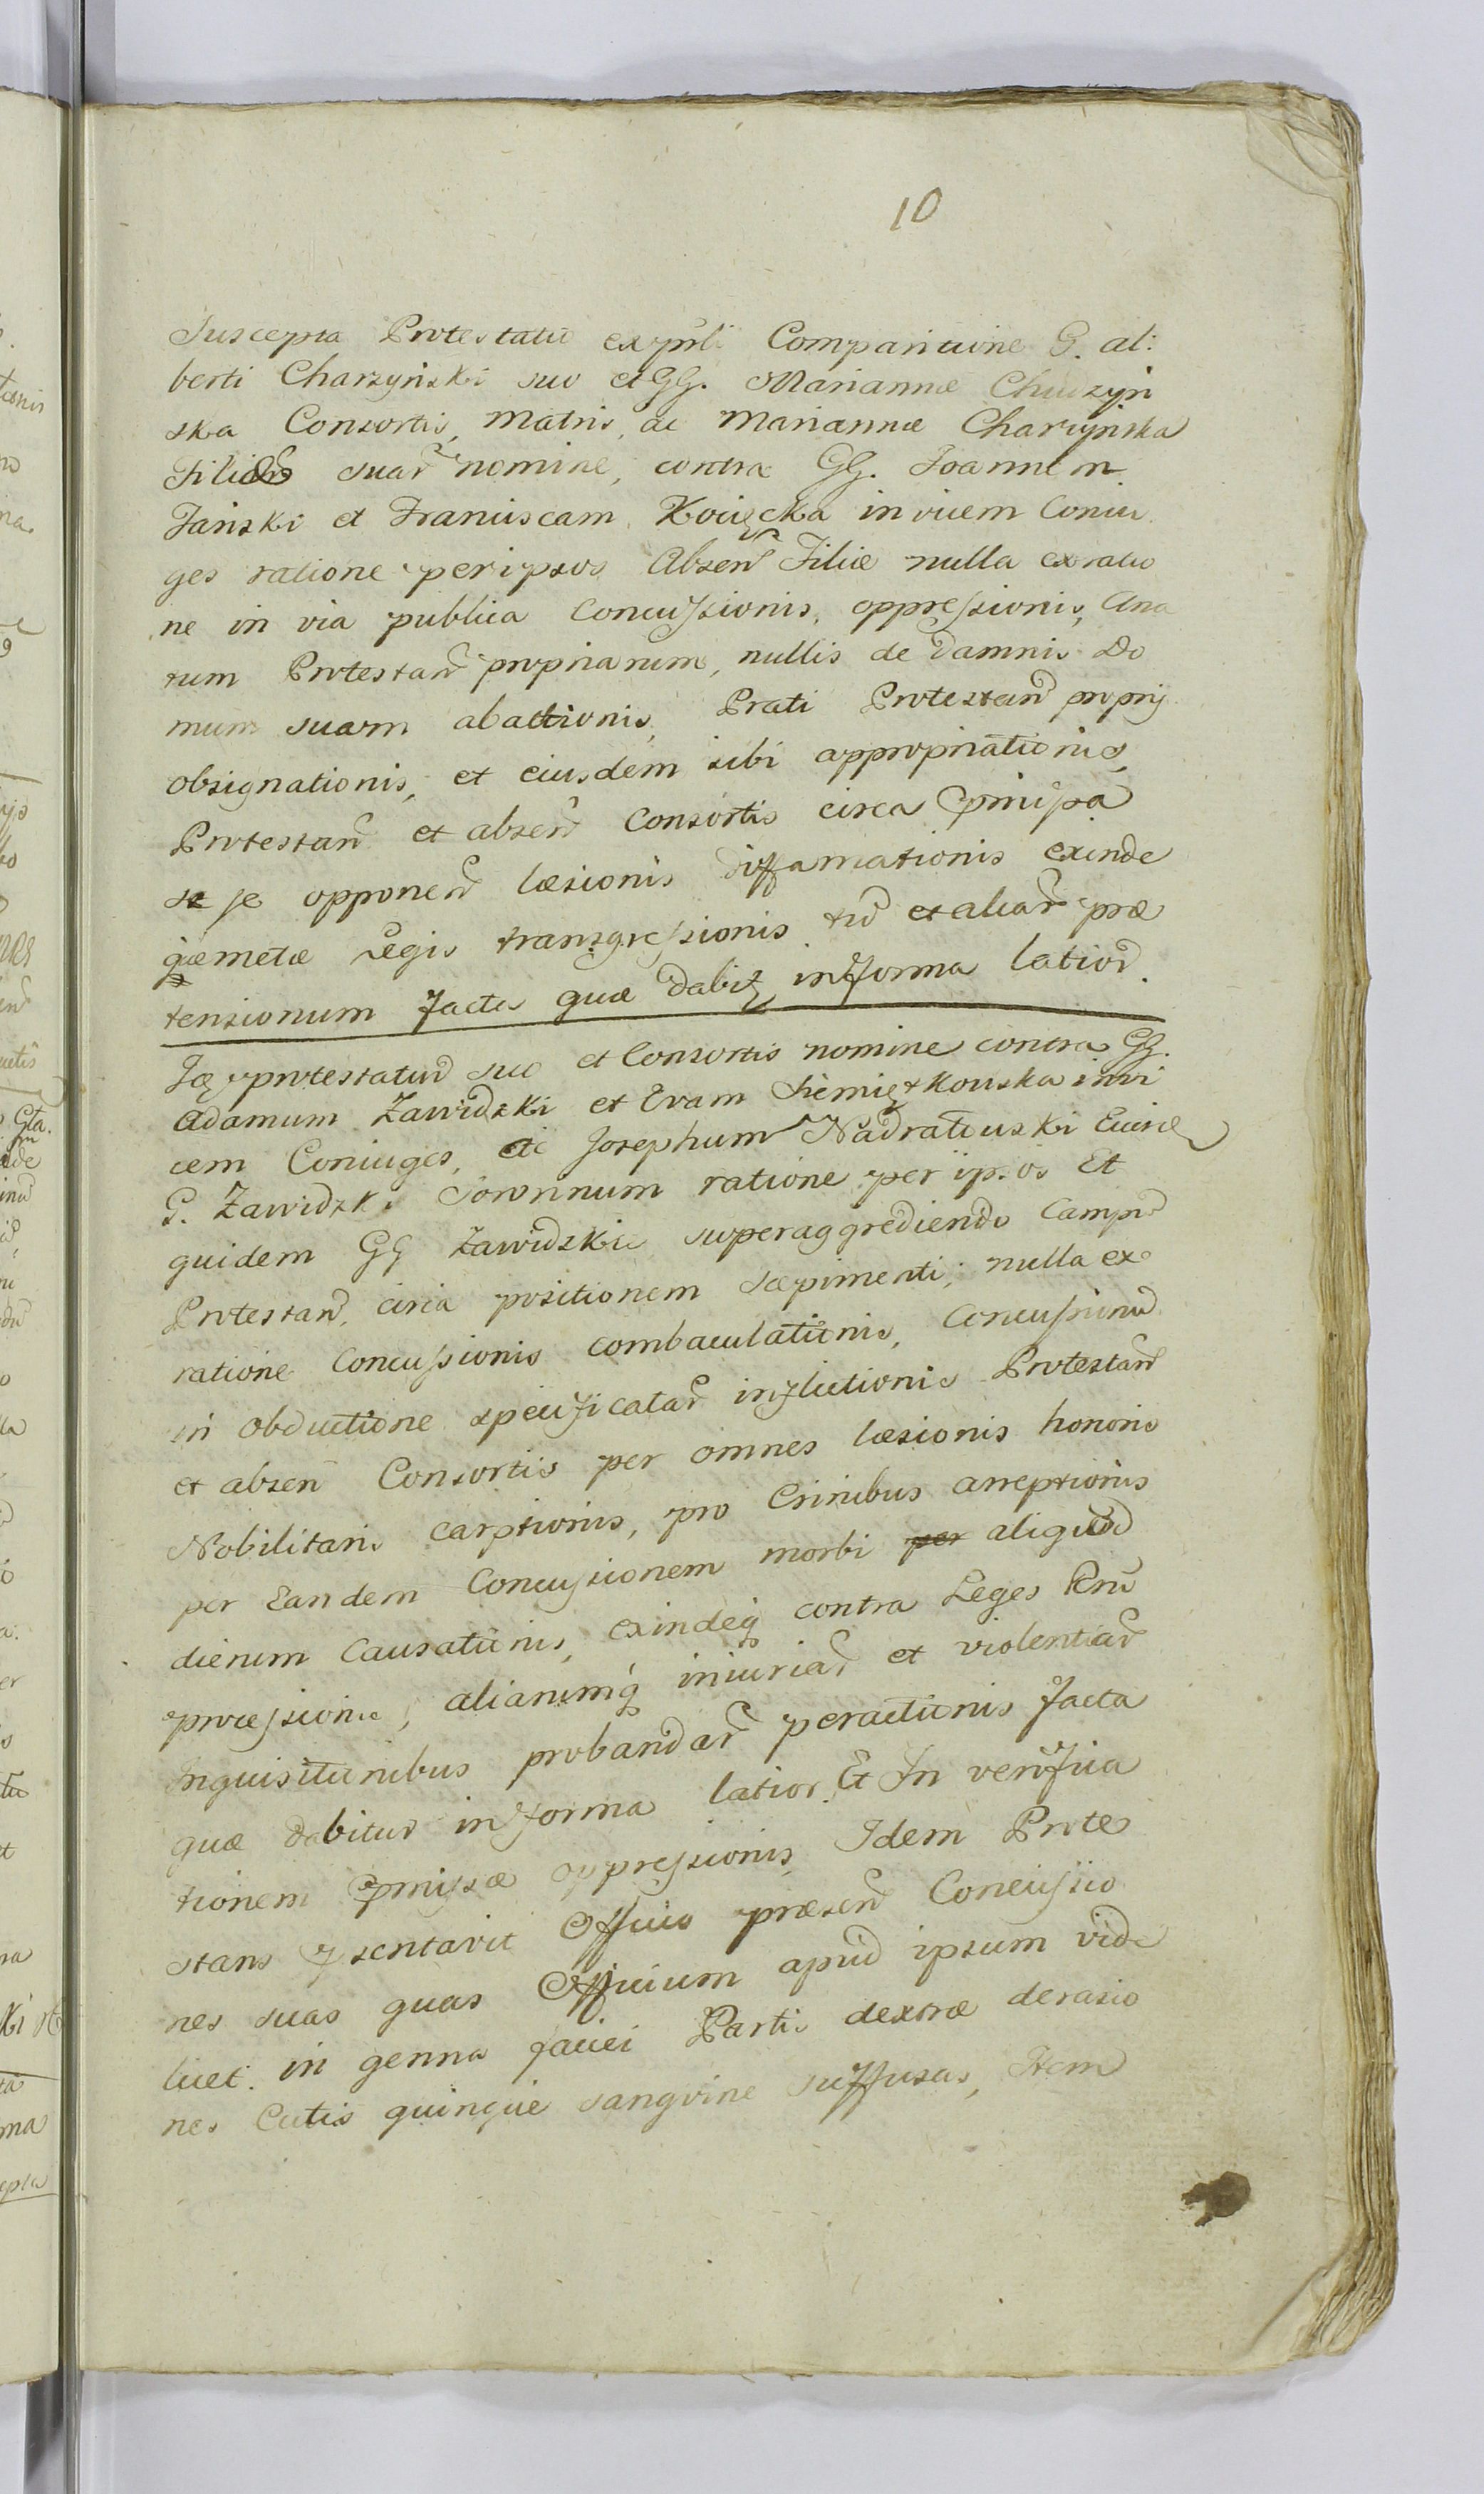 10
Suscepta Protestatio ex Comparitione G. al:
berti Charzyński suo et GG. Mariannæ Chudzyń
ska Consortis, Matris, ac Mariannæ Charzyńska
Filiæ suar nomine, contra GG. Joannem
Jański et Franciscam Kocięcka invicem Coniu
ges ratione per ipsos Absen Filiæ nulla ex ratio
ne in via publica Concussionis, oppressionis, Ana
rum Protestan propriarum, nullis de damnis Do
mum suam abactionis, Prati Protestan proprij
obsignationis, et eiusdem sibi appropriationis,
Protestan et absen Consortis circa
se opponen læsionis diffamationis exinde
Legis transgressionis et aliar præ
tensionum facta quæ dabit in forma latior.
protestatur suo et Consortis nomine contra GG.
Adamum Zawidzki et Evam Siemiątkowska invi
cem Coniuges, ac Josephum Nadratowski
G. Zawidzki Sororinum ratione per ipsos Et
quidem GG Zawidzkie superaggrediendo Camp
Protestan, circa positionem sæpimenti, nulla ex
ratione Concussionis combaculationis, Concussionu
in obductione specificatar inflictionis Protestan
et absen Consortis per omnes læsionis honoris
Nobilitaris carptionis, pro Crinibus arreptionis
per Eandem Concussionem morbi per aliquod
dierum Causationis, exindeq contra Leges
processionis, aliarumq iniuriar et violentiar
Inquisitionibus probandar peractionis facta
quæ dabitur in forma latior. Et In verifica
tionem pmissæ oppressionis Idem Prote
stans Officio præsen Concussio
nes suas quas Officium apud ipsum vidi
licet. in genna faciei Partis dextræ derasio
nes Cutis quinque sangvine suffusas, Item